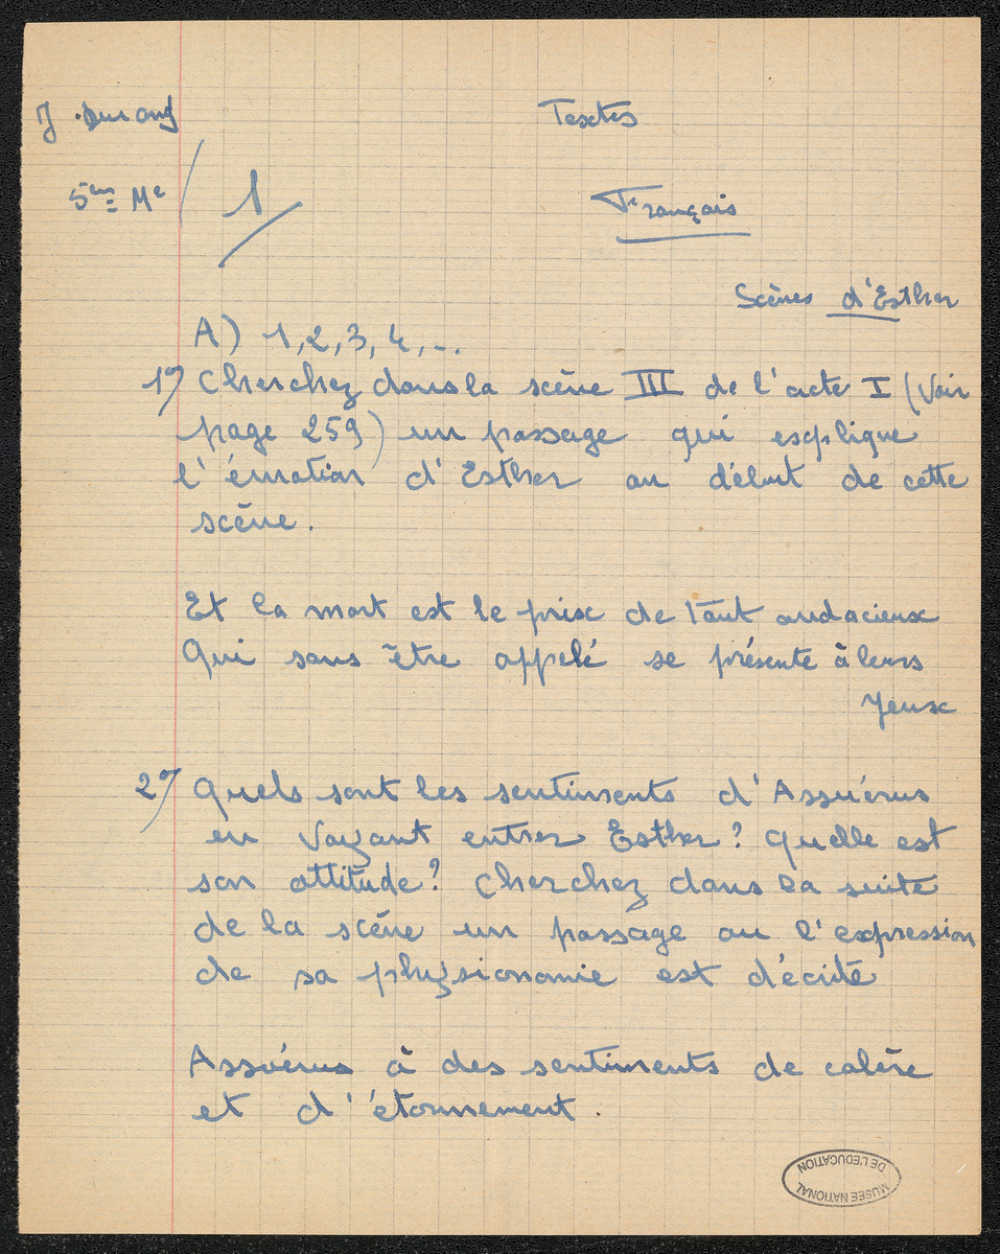 J. Durand
Textes
5ème Me
1
Français
Scènes d'Esther
A) 1, 2, 3, 4, -.
1°/ Cherchez dans la scène III de l'acte I (Voir
page 259) un passage qui explique
l'émotion d'Esther au début de cette
scène.
Et la mort est le prix de tout audacieux
Qui sans être appelé se présente à leurs
Yeux
2°/ Quels sont les sentiments d'Assuérus
en Voyant entrer Esther? Quelle est
son attitude? Cherchez dans la suite
de la scène un passage ou l'expression
de sa physionomie est d'écrite
Assuérus à des sentiments de colère
et d'étonnement.
MUSEE NATIONAL
DE L'EDUCATION